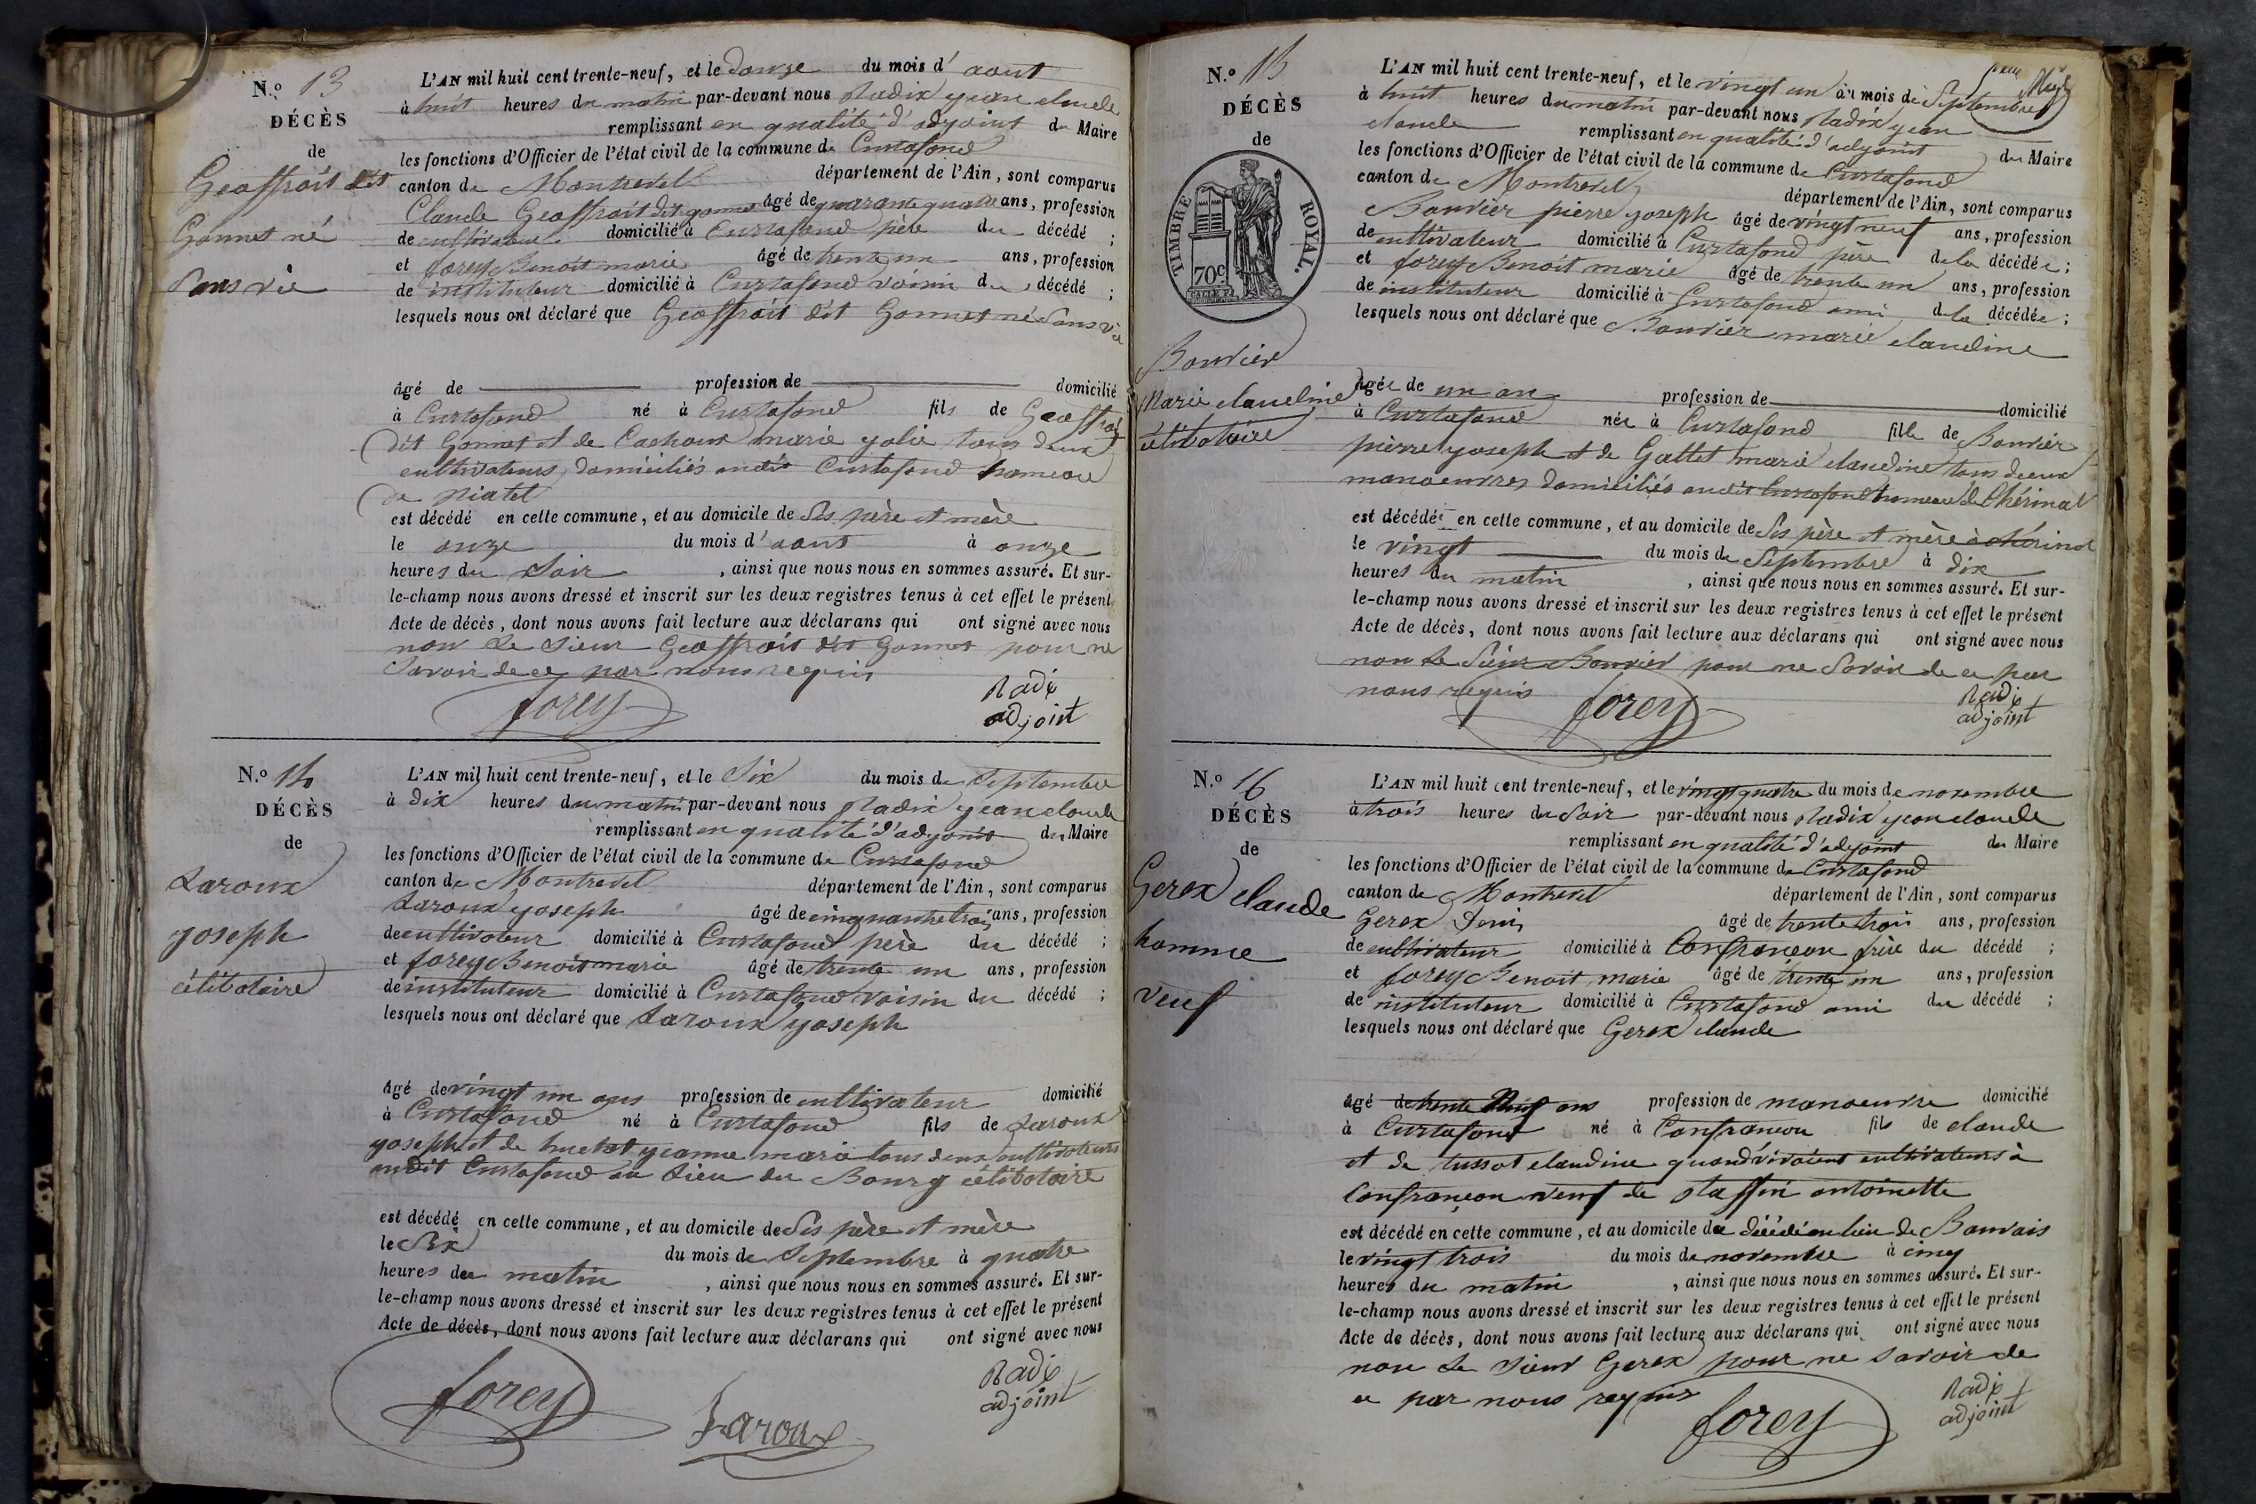 N.º 13
DÉCÈS
de
Geoffrait dit
Gonnet né
sans vie
L'AN mil huit cent trente-neuf, et le douze du mois d'aout
à huit heures du matin par-devant nous Radix jean claude
remplissant en qualité d'adjoint du Maire
les fonctions d'Officier de l'état civil de la commune de Curtafond
canton de Montrevel département de l'Ain, sont comparus
Claude Geoffrait dit gonnet âgé de quarante quatre ans, profession
de cultivateur domicilié à Curtafond père du décédé ;
et forey Benoit marie âgé de trente un ans, profession
de instituteur domicilié à Curtafond voisin du décédé ;
lesquels nous ont déclaré que Geoffrait dit Gonnet né sans vie
âgé de profession de domicilié
à Curtafond né à Curtafond fils de Geoffrait
dit Gonnet et de Cachout marie julie tous deux
cultivateurs domiciliés audit Curtafond hameau
de
est décédé en cette commune, et au domicile de ses père et mère
le onze du mois d'aout à onze
heures du soir , ainsi que nous nous en sommes assuré. Et sur-
le-champ nous avons dressé et inscrit sur les deux registres tenus à cet effet le présent
Acte de décès, dont nous avons fait lecture aux déclarans qui ont signé avec nous
non le sieur Geoffrait dit Gonnet pour ne
savoir de ce par nous requis
forey
Radix
adjoint
N.º 14
DÉCÈS
de
Laroux
joseph
célibataire
L'AN mil huit cent trente-neuf, et le six du mois de Septembre
à dix heures du matin par-devant nous Radix jean claude
remplissant en qualité d'adjoint du Maire
les fonctions d'Officier de l'état civil de la commune de Curtafond
canton de Montrevel département de l'Ain, sont comparus
Laroux joseph âgé de cinquante trois ans, profession
de cultivateur domicilié à Curtafond père du décédé ;
et forey Benoit marie âgé de trente un ans, profession
de instituteur domicilié à Curtafond voisin du décédé ;
lesquels nous ont déclaré que Laroux joseph
âgé de vingt un ans profession de cultivateur domicilié
à Curtafond né à Curtafond fils de Laroux
joseph et de jeanne marie tous deux cultivateurs
audit Curtafond au lieu du Bourg célibataire
est décédé en cette commune, et au domicile de ses père et mère
le Six du mois de Septembre à quatre
heures du matin , ainsi que nous nous en sommes assuré. Et sur-
le-champ nous avons dressé et inscrit sur les deux registres tenus à cet effet le présent
Acte de décès, dont nous avons fait lecture aux déclarans qui ont signé avec nous
forey
Laroux
Radix
adjoint
N.º 15
DÉCÈS
de
TIMBRE ROYAL.
70c
Bouvier
Marie claudine
célibataire
L'AN mil huit cent trente-neuf, et le vingt un du mois de Septembre
à huit heures du matin par-devant nous Radix jean
claude remplissant en qualité d'adjoint du Maire
les fonctions d'Officier de l'état civil de la commune de Curtafond
canton de Montrevel département de l'Ain, sont comparus
Bouvier pierre joseph âgé de vingt neuf ans, profession
de cultivateur domicilié à Curtafond père de la décédée ;
et forey Benoit marie âgé de trente un ans, profession
de instituteur domicilié à Curtafond ami de la décédée ;
lesquels nous ont déclaré que Bouvier marie claudine
âgée de un an profession de domicilié
à Curtafond née à Curtafond fille de Bouvier
pierre joseph et de Gallet marie claudine tous deux
manoeuvres domiciliés audit Curtafond hameau de Chérinal
est décédée en cette commune, et au domicile de ses père et mère à chérinal
le vingt du mois de Septembre à dix
heures du matin , ainsi que nous nous en sommes assuré. Et sur-
le-champ nous avons dressé et inscrit sur les deux registres tenus à cet effet le présent
Acte de décès, dont nous avons fait lecture aux déclarans qui ont signé avec nous
non le Sieur Bouvier pour ne savoir de ce par
nous requis
forey
Radix
adjoint
N.º 16
DÉCÈS
de
Gerex claude
homme
veuf
L'AN mil huit cent trente-neuf, et le vingt quatre du mois de novembre
à trois heures du soir par-devant nous Radix jean claude
remplissant en qualité d'adjoint du Maire
les fonctions d'Officier de l'état civil de la commune de Curtafond
canton de Montrevel département de l'Ain, sont comparus
Gerex Denis âgé de trente trois ans, profession
de cultivateur domicilié à Confrancon frère du décédé ;
et forey Benoit marie âgé de trente un ans, profession
de instituteur domicilié à Curtafond ami du décédé ;
lesquels nous ont déclaré que Gerex claude
âgé de trente neuf ans profession de manoeuvre domicilié
à Curtafond né à Confrancon fils de claude
et de tussot claudine quand vivaient cultivateurs à
Confrançon veuf de antoinette
est décédé en cette commune, et au domicile du décédé au lieu de Bouvais
le vingt trois du mois de novembre à cinq
heures du matin , ainsi que nous nous en sommes assuré. Et sur-
le-champ nous avons dressé et inscrit sur les deux registres tenus à cet effet le présent
Acte de décès, dont nous avons fait lecture aux déclarans qui ont signé avec nous
non le sieur Gerex pour ne savoir de
ce par nous requis
forey
Radix
adjoint